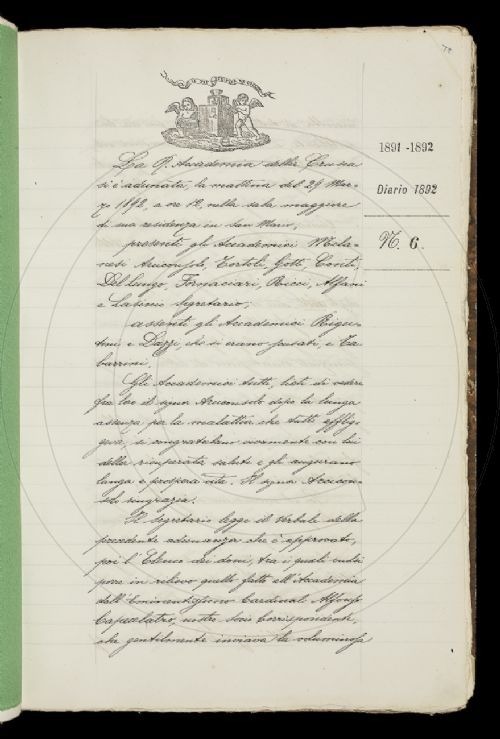 1891-1892
Diario 1892
N. 6.
La R. Accademia della Crusca
si è adunata, la mattina del 29 Mar-
zo 1892, a ore 12, nella sala maggiore
di sua residenza in San Marco,
presenti gli Accademici Mila-
nesi Arciconsolo, Tortoli, Gotti, Conti,
Del Lungo, Fornaciari, Ricci, Alfani
e Segretario;
assenti gli Accademici Rigu-
tini e Dazzi, che si erano scusati, e Ta-
barrini.
Gli Accademici tutti, lieti di vedere
fra loro il signor Arciconsolo dopo la lunga
assenza per la malattia che tutti afflig-
geva, si congratulano vivamente con lui
della ricuperata salute e gli augurano
lunga e prospera vita. Il signor Arcicon-
solo ringrazia.
Il Segretario legge il Verbale della
precedente adunanza che è approvato,
poi l'Elenco dei doni, tra i quali vuolsi
porre in rilievo quello fatto all'Accademia
dall'Eminentissimo Cardinale Alfonso
Capecelatro, nostro Socio corrispondente,
che gentilmente inviava la voluminosa